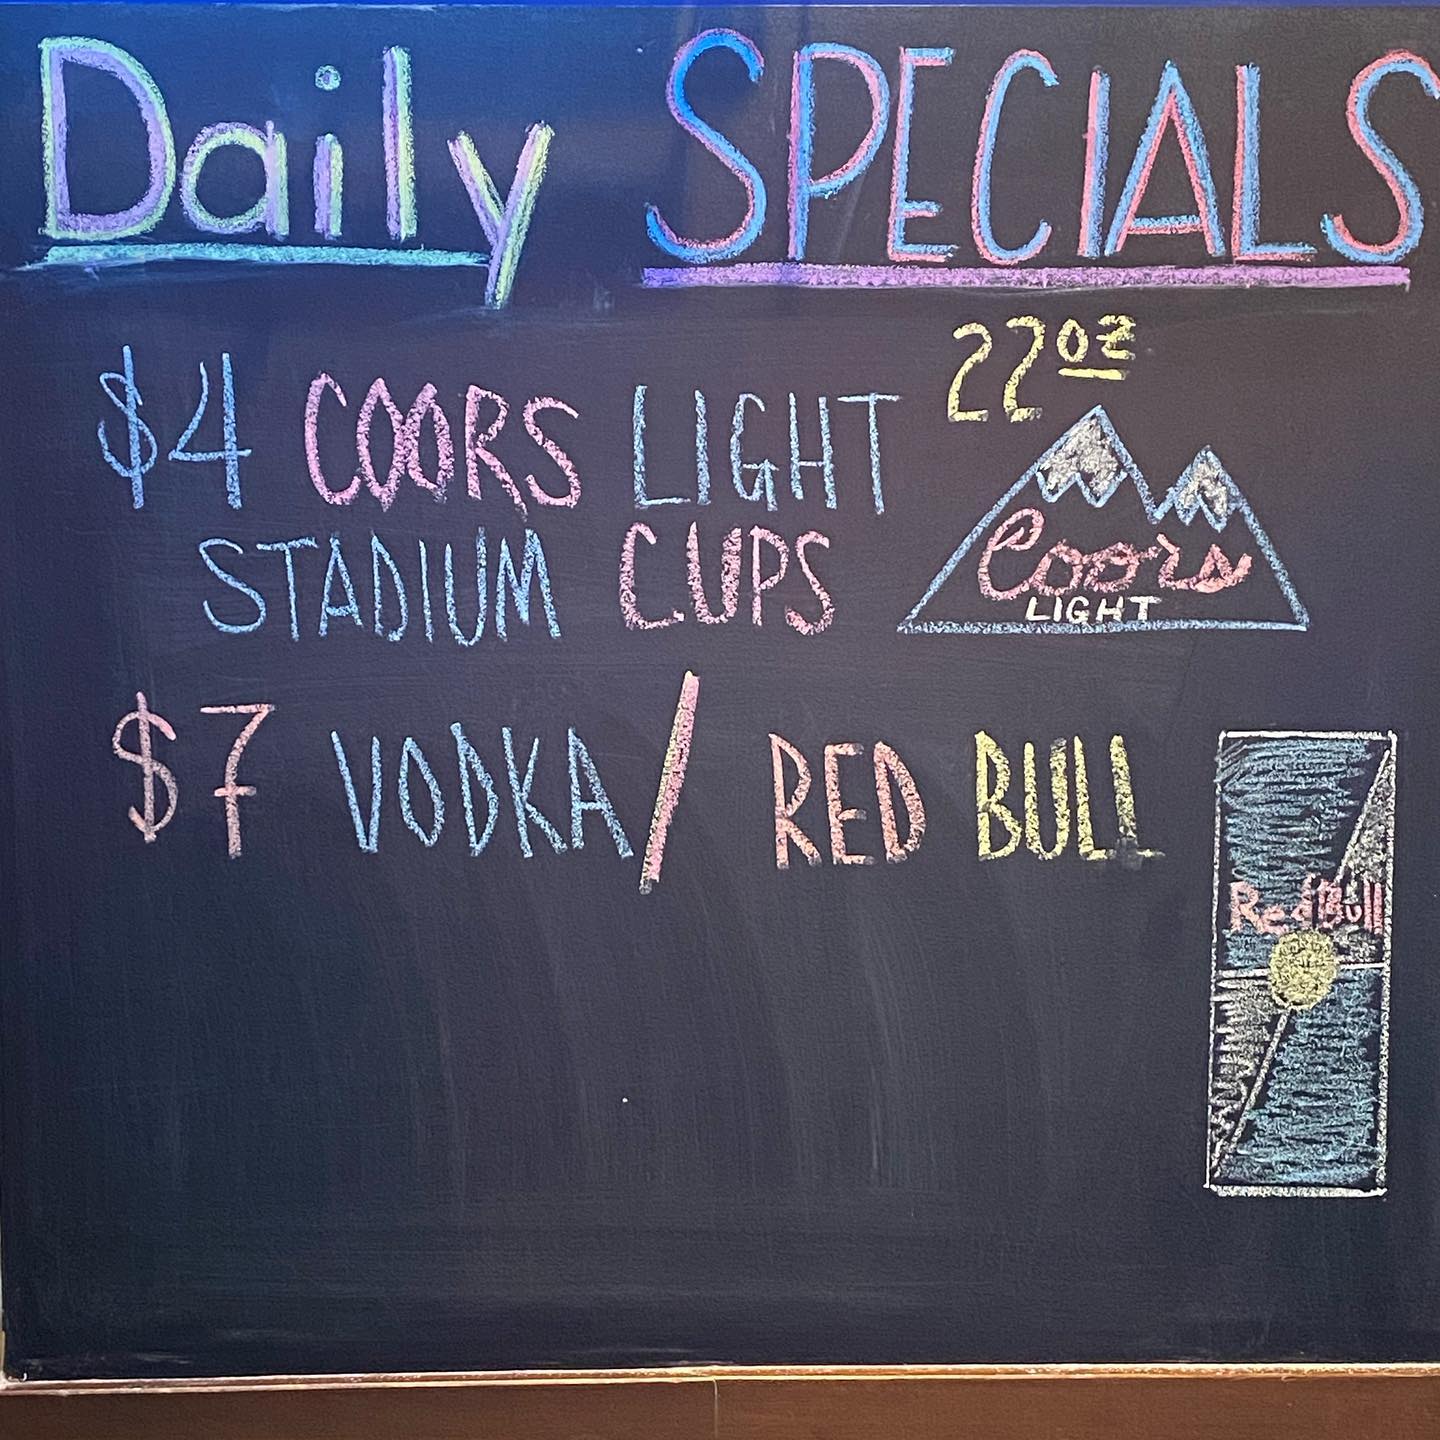 Daily SPECIALS
22oz
$4 COORS LIGHT
STADIUM CUPS
Coors
LIGHT
$7 VODKA/ RED BULL
RedBull